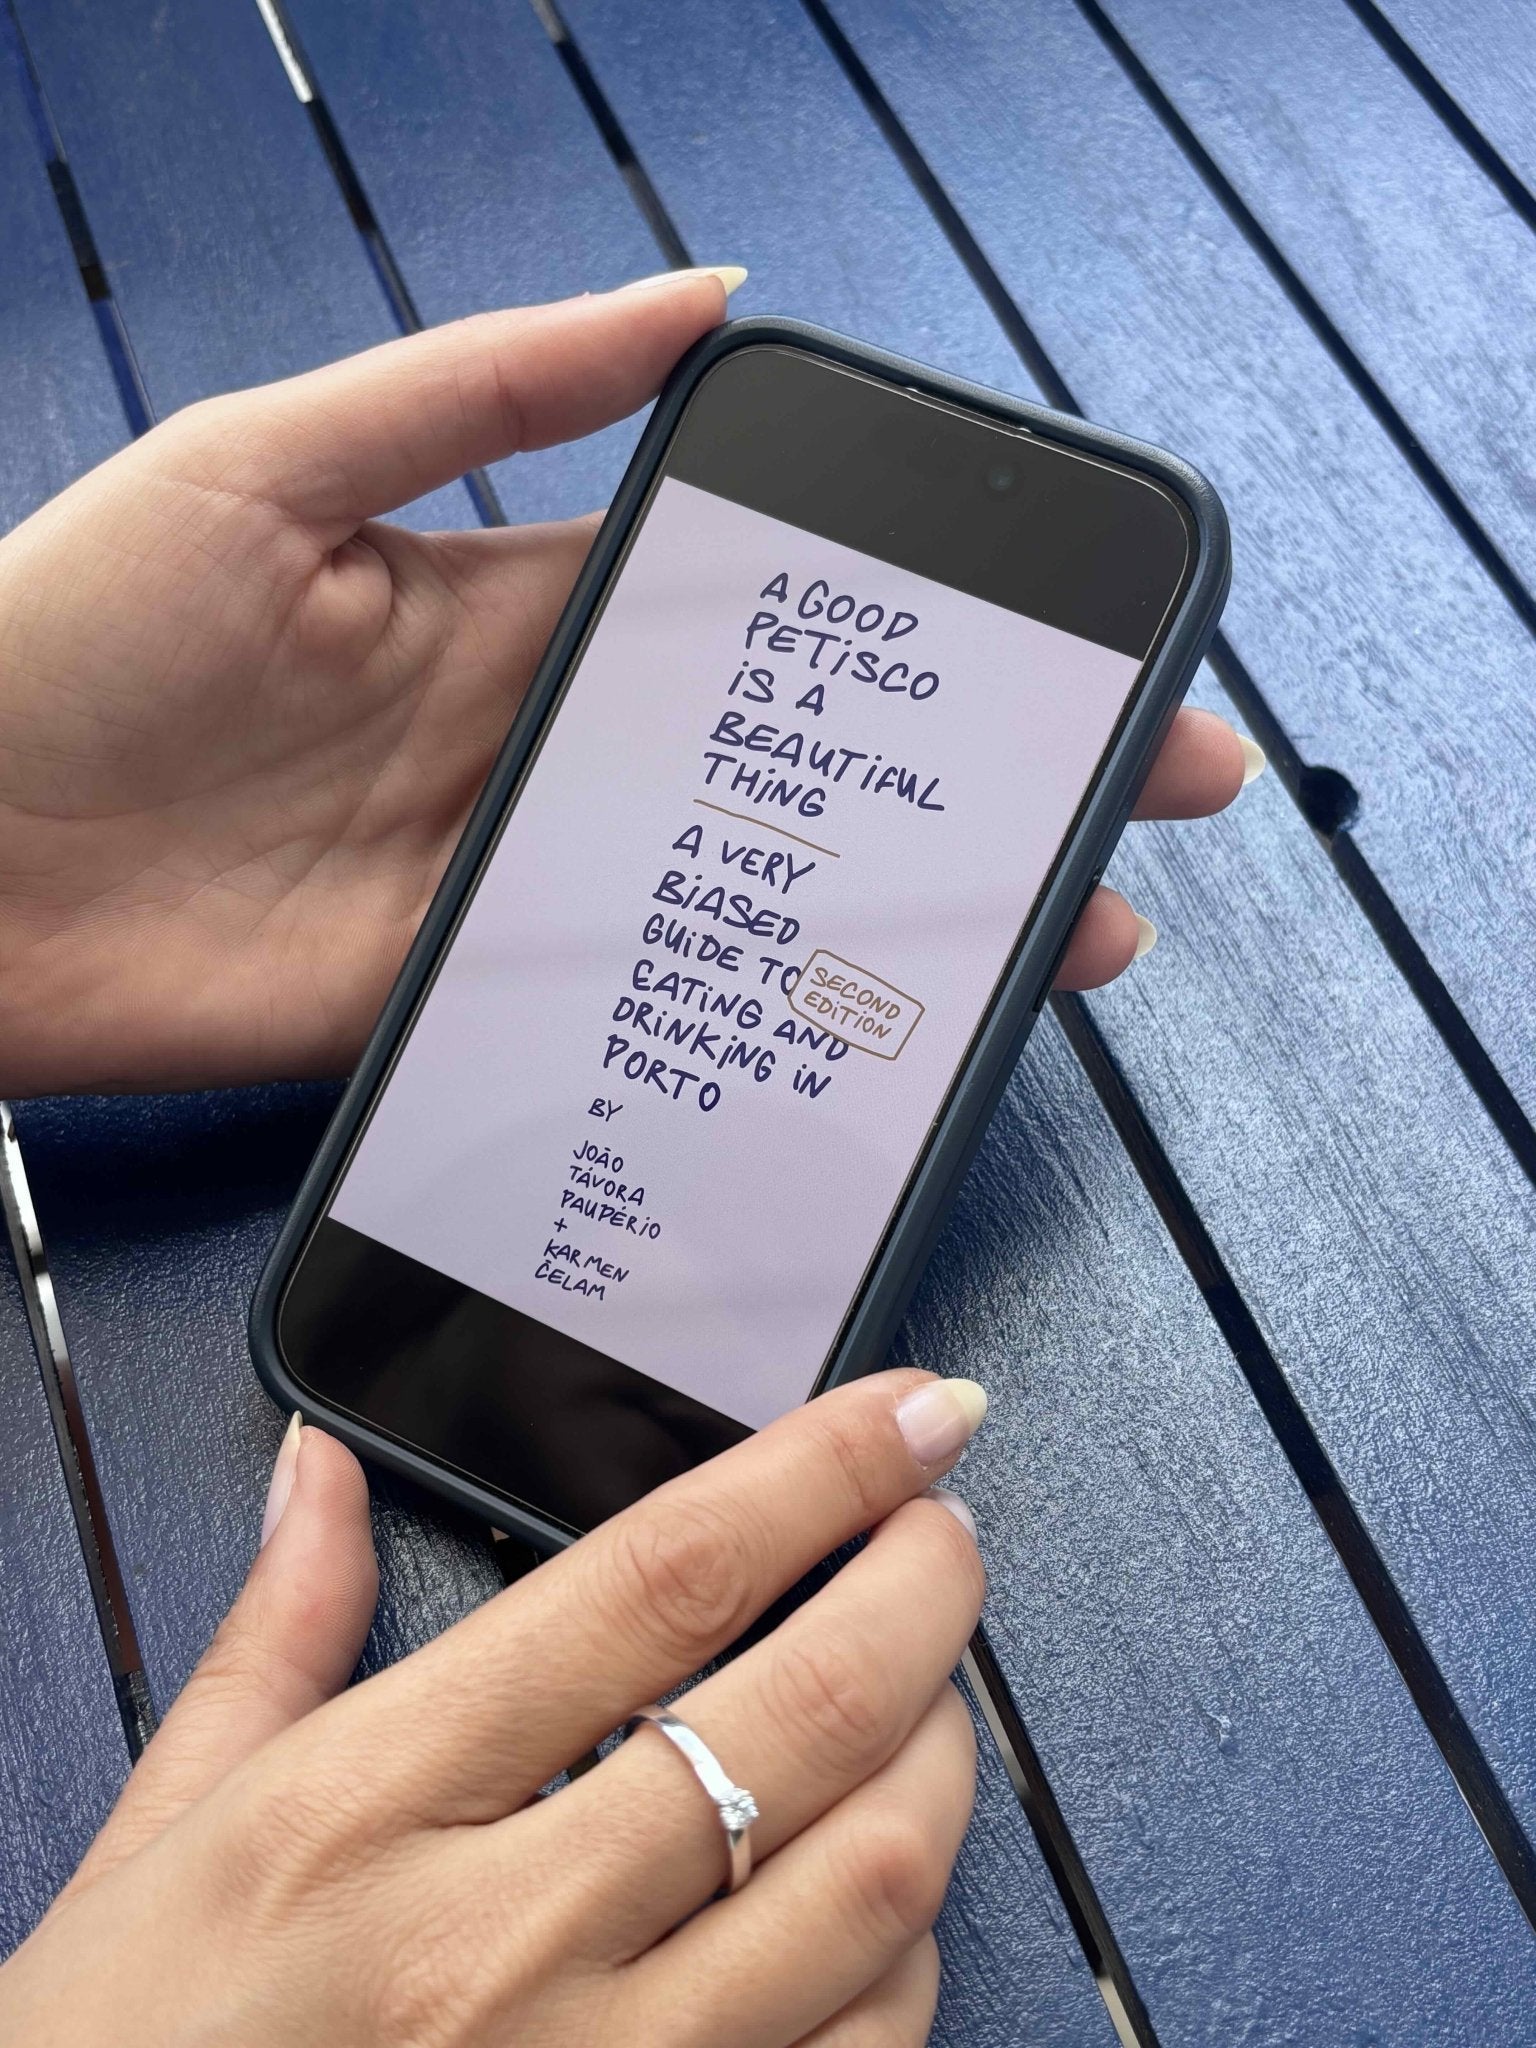 A GOOD
PETiSCO
iS A
BEAUTiFUL
THiNG
A VERY
BiASED
GUiDE TO
EATiNG AND
DRiNKiNG iN
PORTO
SECOND
EDiTiON
BY
JOÃO
TÁVORA
PAUPÉRiO
+
KARMEN
ČELAM